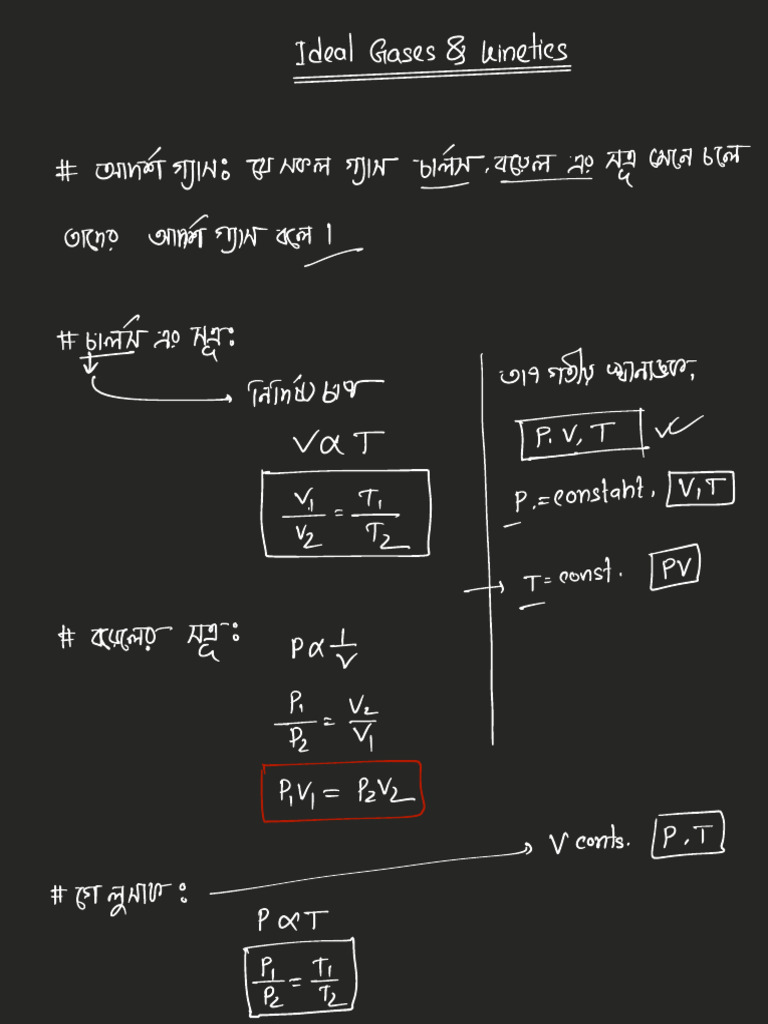 Ideal Gases & Kinetics
# আদর্শ গ্যাসঃ যে সকল গ্যাস চার্লস, বয়েল এর সূত্র মেনে চলে
তাদের আদর্শ গ্যাস বলে।
# চার্লস এর সূত্রঃ
নির্দিষ্ট চাপ
V ∝ T
V₁/V₂ = T₁/T₂
তাপ গতীয় স্থানাঙ্ক,
P, V, T
P = constant, V, T
T = const. PV
# বয়েলের সূত্রঃ
P ∝ 1/V
P₁/P₂ = V₂/V₁
P₁V₁ = P₂V₂
V conts. P, T
# গে লুসাকঃ
P ∝ T
P₁/P₂ = T₁/T₂